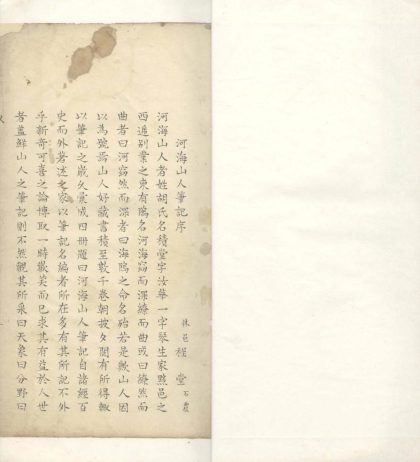 河海山人筆記序
休邑程堂石
河海山人者姓胡氏名積堂字汝華一字琴生家黟邑之
西遞別業之東有隖名河海窈而深繚而曲或曰繚然而
曲者曰河窈然而深者曰海隖之命名殆若是歟山人因
以為號焉山人好藏書積至數千卷朝披夕閱有所得輒
以筆記之歲久裒成四冊題曰河海山人筆記自諸經百
史而外著述之家以筆記名編者所在多有其所記不外
乎新奇可喜之論博取一時歡笑而已求其有益於人世
者蓋鮮山人之筆記則不然觀其所采曰天象曰分野曰